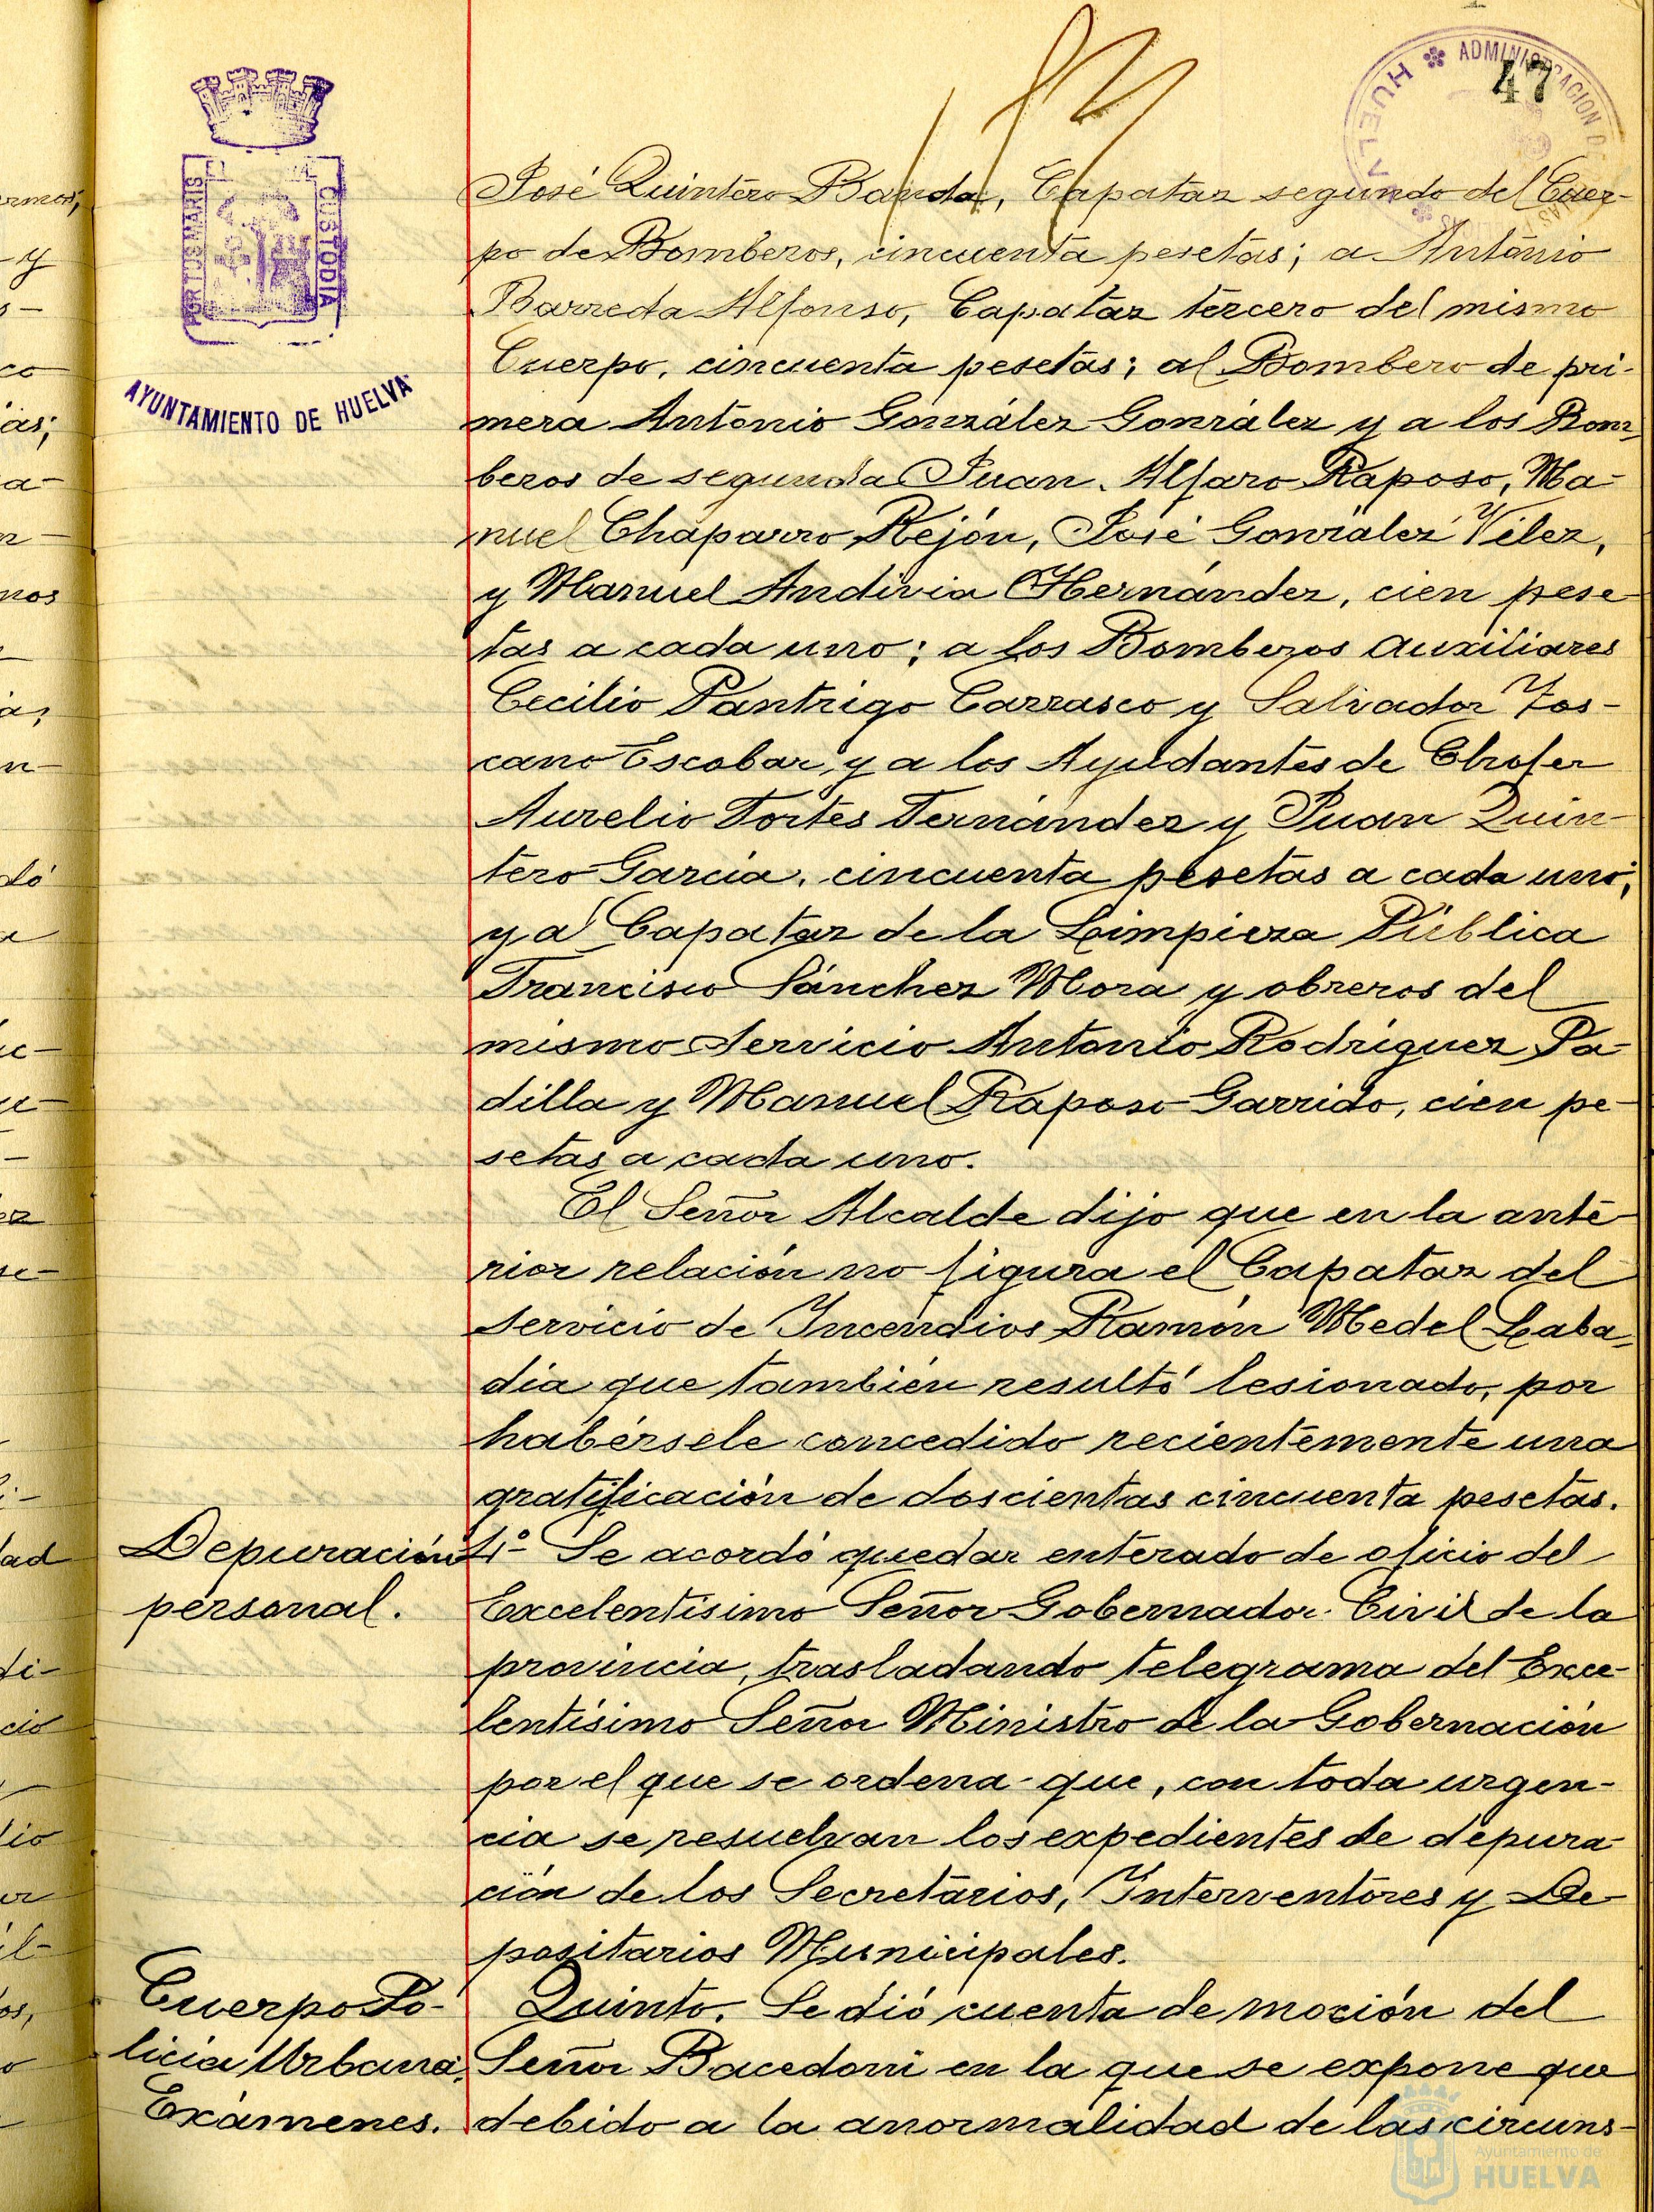 47
ADMINISTRACION DE
HUELVA
PORTUS MARIS
CUSTODIA
AYUNTAMIENTO DE HUELVA
José Quintero Banda, Capataz segundo del Cuer-
po de Bomberos, cincuenta pesetas; a Antonio
Barreda Alfonso, Capataz tercero del mismo
Cuerpo, cincuenta pesetas; al Bombero de pri-
mera Antonio González González y a los Bom-
beros de segunda Juan Alfaro Raposo, Ma-
nuel Chaparro Rejón, José González Vélez,
y Manuel Andivia Hernández, cien pese-
tas a cada uno; a los Bomberos auxiliares
Cecilio Pantrigo Carrasco y Salvador Tos-
cano Escobar y a los Ayudantes de Chofer
Aurelio Fortes Fernández y Juan Quin-
tero García, cincuenta pesetas a cada uno;
y al Capataz de la Limpieza Pública
Francisco Sánchez Mora y obreros del
mismo Servicio Antonio Rodríguez Pa-
dilla y Manuel Raposo Garrido, cien pe-
setas a cada uno.
El Señor Alcalde dijo que en la ante-
rior relación no figura el Capataz del
Servicio de Incendios Ramón Medel Laba-
dia que también resultó lesionado, por
habérsele concedido recientemente una
gratificación de doscientas cincuenta pesetas.
Depuración
personal.
4º- Se acordó quedar enterado de oficio del
Excelentísimo Señor Gobernador Civil de la
provincia, trasladando telegrama del Exce-
lentísimo Señor Ministro de la Gobernación
por el que se ordena que, con toda urgen-
cia se resuelvan los expedientes de depura-
ción de los Secretarios, Interventores y De-
positarios Municipales.
Cuerpo Po-
licia Urbana.
Exámenes.
Quinto. Se dió cuenta de moción del
Señor Bacedoni en la que se expone que
debido a la anormalidad de las circuns-
Ayuntamiento de
HUELVA